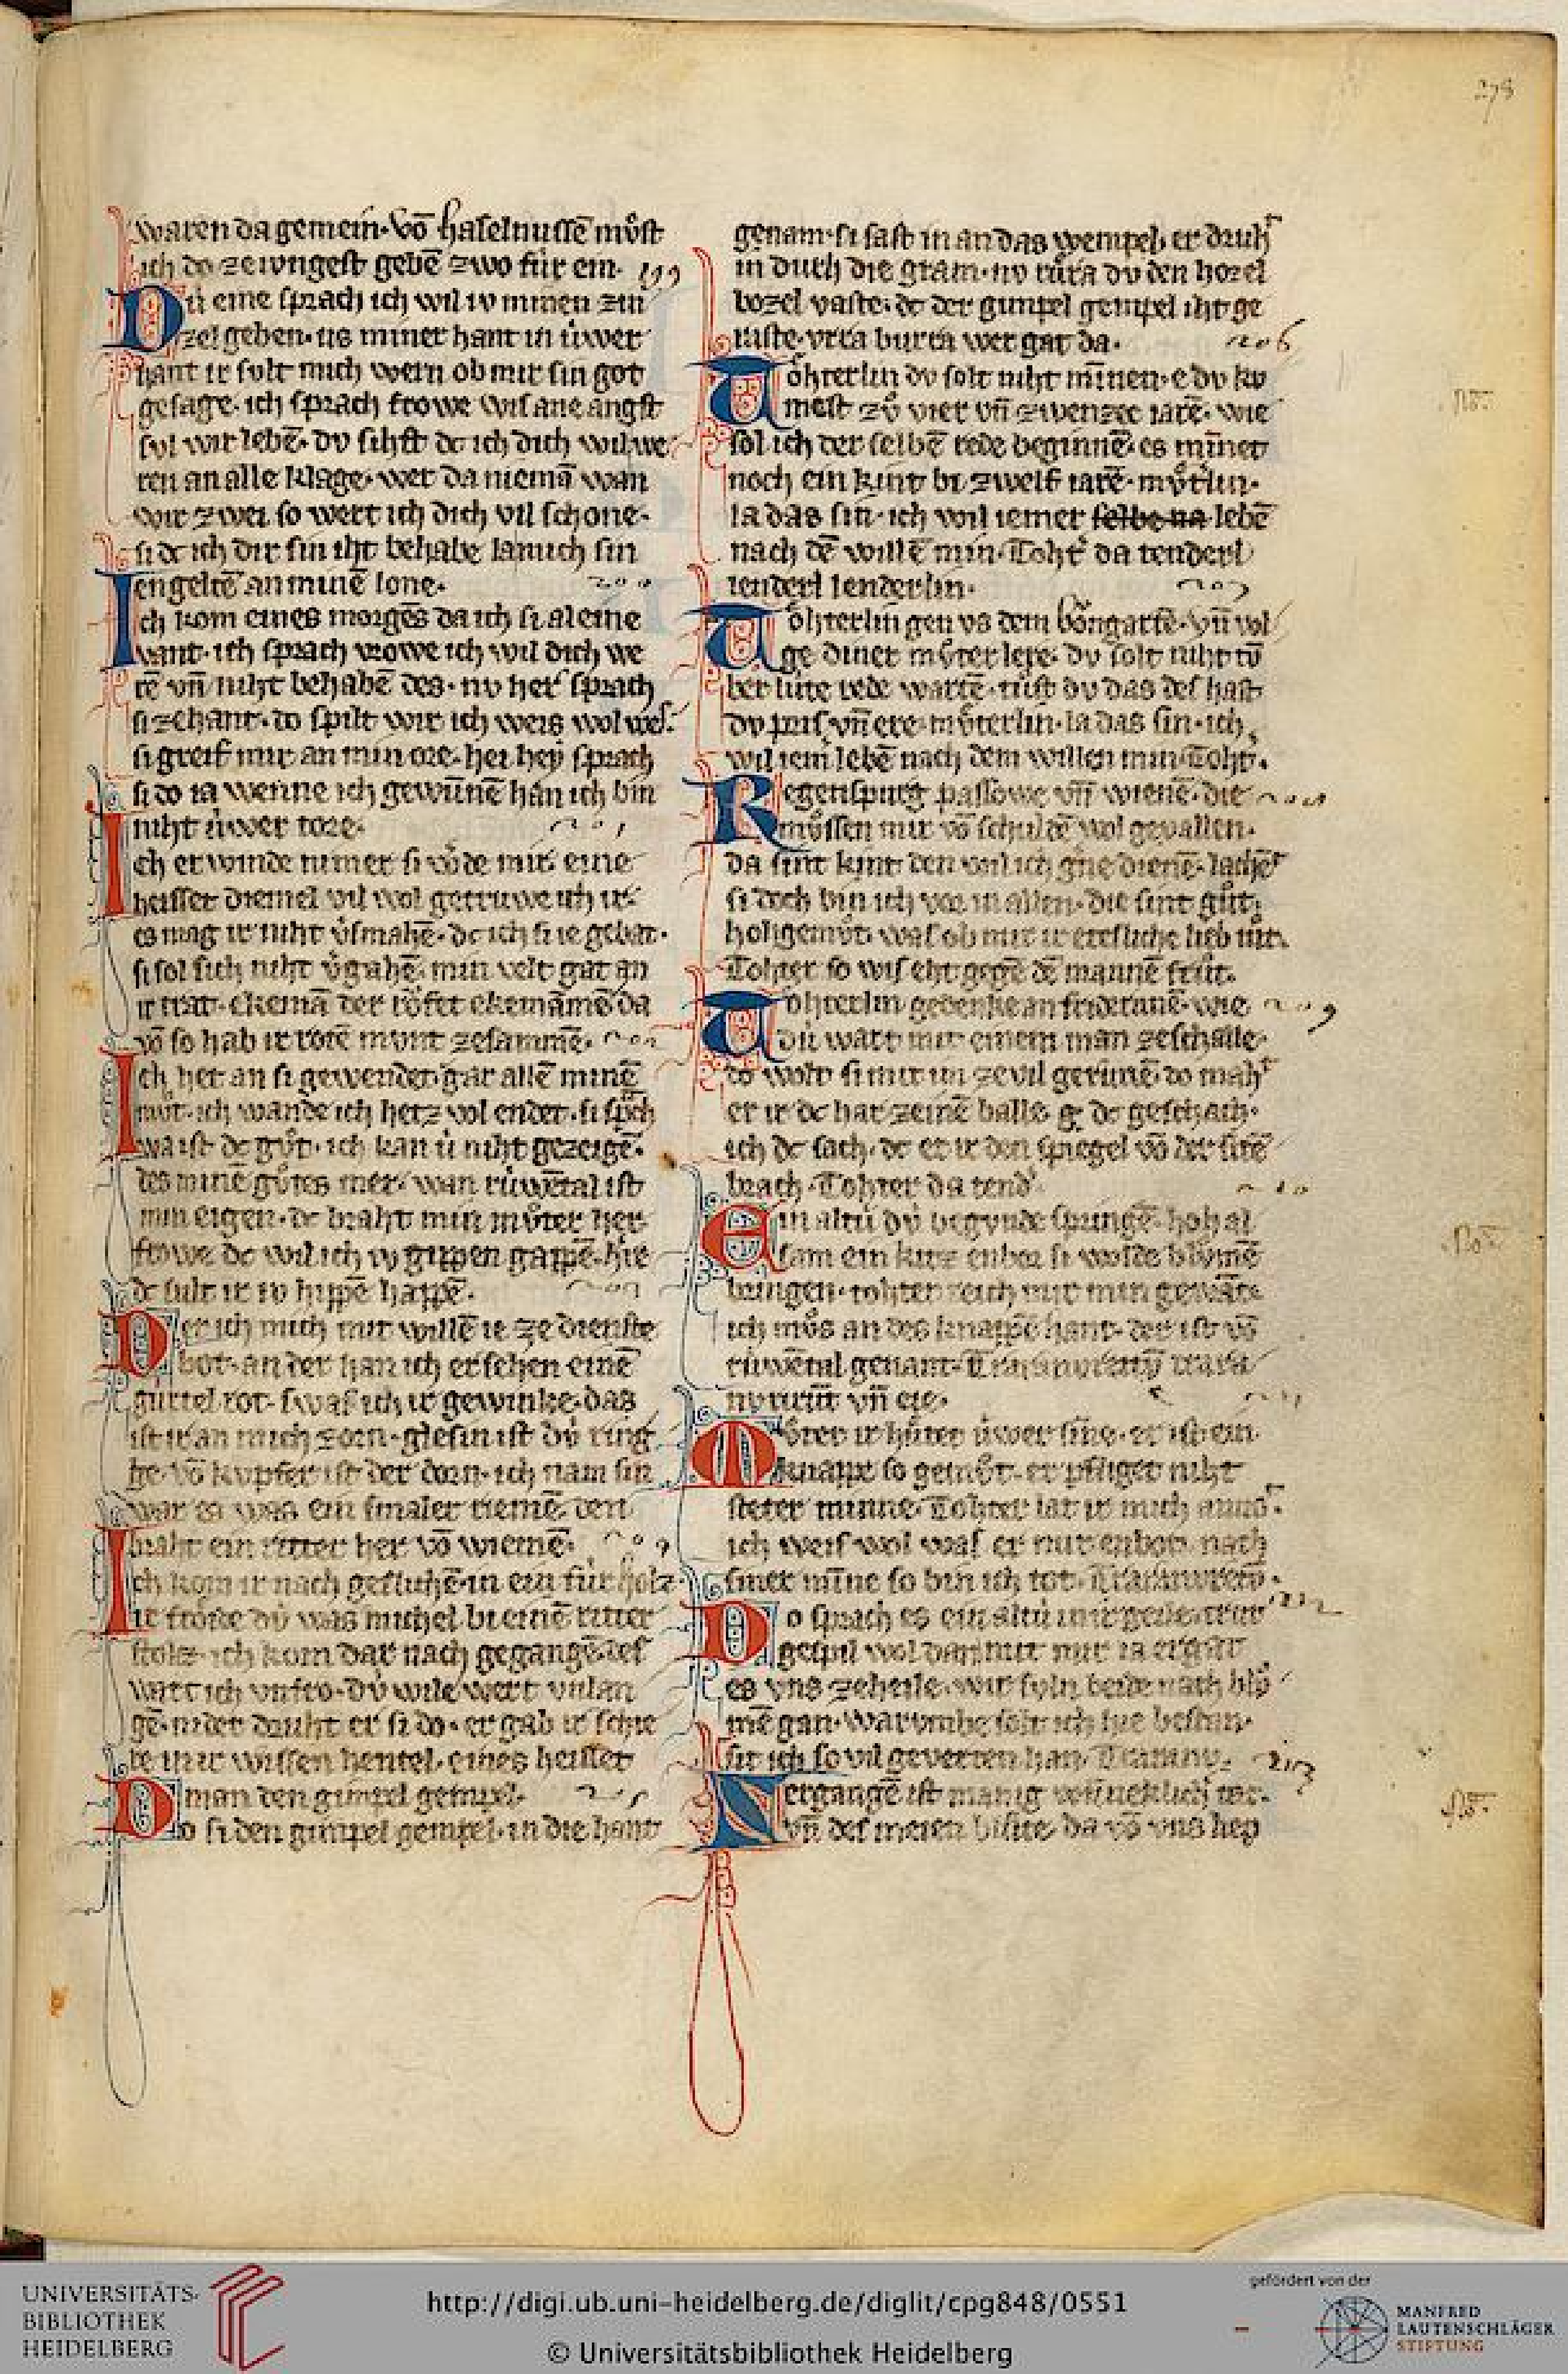 278
waren da gemein· vō haselnussē mvͦst
ich do ze iungest gebē zwo fúr ein· 199
Dú eine sprach ich wil iv minen zin
zel geben· us miner hant in úwer
hant ir sult mich wern ob mir sin got
gesage· ich sprach frowe wis ane angst
svl wir lebē· dv sihst dc ich dich wil we
ren an alle klage· wer da niemā wan
wir zwei so wert ich dich vil schone·
si dc ich dir sin iht behabe la mich sin
engeltē an minē lone· 200
Ich kom eines morgēs da ich si aleine
vant· ich sprach vrowe ich wil dich we
rē vn̄ niht behabē des· nv her sprach
si zehant· do spilt wir ich weis wol wes·
si greif mir an min ore· hei hey sprach
si do ia wenne ich gewunnē han ich bin
niht úwer tore· 201
Ich erwinde nimer si vō de mir eine
heisset diemel vil wol getruwe ich ir·
es mag ir niht v̓smahē· dc ich si ie gebat·
si sol sich niht v̓gahē· min velt gat an
ir trat· ekeinā der rōfet ekeinā mē da
vō so hab ir rotē mvnt zesammē· 202
Ich het an si gewendet gar allē minē
mvͦt· ich wande ich hetz vol endet· si sp̄ch
wa ist dc gvͦt· ich kan ú niht gezeigē·
des minē gvͦtes mer· wan rúwētal ist
min eigen· dc braht min mvͦter her
frowe dc wil ich iv gippen gappē· hie
dc sult ir iv hippē happē· 203
Der ich mich mit willē ie ze dienste
bot· an der han ich ersehen einē
gurtel rot· swas ich ir gewinke· das
ist ir an mich zorn· glesin ist dú ring
ge· vō kvpfer ist der dorn· ich nam sin
war es was ein smaler riemē· den
braht ein ritter her vō wienē· 204
Ich kom ir nach geslichē in ein fúr holz·
ir frōide dú was michel bi einē ritter
stolz· ich kom dar nach gegangē· des
wart ich vnfro· dú wile wert vnlan
ge· nider druht er si do· er gab ir schie
re in ir wissen hentel· eines heisset
man den gimpel gempel· 205
Do si den gimpel gempel· in die hant
genam· si sast in an das wempel· er druht̓
in durh die gram· nv rúra dv den hozel
bozel vaste· dc der gimpel gempel iht ge
raste· vrra burra wer gat da· 206
Tōhterlin dv solt niht minnen· e dv kv
mest zvͦ vier vn̄ zwenzec iarē· wie
sol ich der selbē rede beginnē· es minnet
noch ein kint bi zwelf iarē· mvͤtlin·
la das sin· ich wil iemer selbe na lebē
nach dē willē min· Toht̓ da tenderl
lenderl lenderlin· 207
Tōhterlin gen vs dem bōngartē· vn̄ vol
ge diner mvͦter lere· dv solt niht tv̄
ber lúte rede wartē· túst dv das des hast
dv pris vn̄ ere· mvͤterlin· la das sin· ich
wil iem̓ lebē nach dem willen min· Toht̓·
Regenspurg passowe vn̄ wiene· die 208
mvͤssen mir vō schuldē wol gevallen·
da sint kint den wil ich g̓ne dienē· lachēt
si doch bin ich vor in allen· die sint gvͦt·
hohgemvͦt· was ob mir ir etesliche lieb tvͦt·
Tohter so wis eht gegē dē mannē frvͦt·
Tōhterlin gedenke an friderunē· wie 209
dú wart mit einem man zeschalle·
do wolt si mit im ze vil gerunē· do maht̓
er ir dc har zeinē balle· dc geschach·
ich dc sach· dc er ir den spiegel vō der sitē
brach· Tohter da tend̓ 210
Ein altú dú begvnde springē· hoh al
sam ein kitz enbor si wolde blvͦmē
bringen· tohter reich mir min gewāt·
ich mvͦs an des knappē hant· der ist vō
rúwētal genant· Traranvretū trara
nvrirutt vn̄ eie· 211
Mvͦter ir hvͤtet úwer sine· er ist ein
knappe so gemvͦt· er pfliget niht
steter minne· Tohter lat ir mich anno̓·
ich weis wol was er mir enbot· nach
siner mīne so bin ich tot· Traranvretū·
Do sprach es ein altú in ir geile· trut 212
gespil wol dan mit mir ia ergat
es vns zeheile· wir svln beide nach blvͦ
mē gan· warvmbe solt ich hie bestan·
sit ich so vil geverten han· Traranv·
Nv ergangē ist manig wunneklich̓ tac· 213
vn̄ des meien blvͤte· da vō vns hep
UNIVERSITÄTS-
BIBLIOTHEK
HEIDELBERG
http://digi.ub.uni-heidelberg.de/diglit/cpg848/0551
© Universitätsbibliothek Heidelberg
gefördert von der
MANFRED
LAUTENSCHLÄGER
STIFTUNG